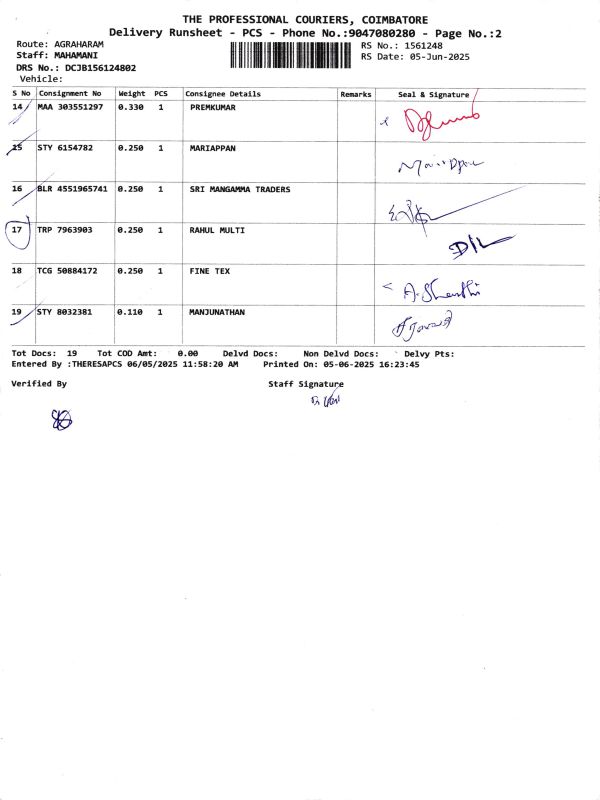 THE PROFESSIONAL COURIERS, COIMBATORE
Delivery Runsheet - PCS - Phone No.:9047080280 - Page No.:2
Route: AGRAHARAM
Staff: MAHAMANI
DRS No.: DCJB156124802
Vehicle:
RS No.: 1561248
RS Date: 05-Jun-2025
S No Consignment No Weight PCS Consignee Details Remarks Seal & Signature
14 MAA 303551297 0.330 1 PREMKUMAR
15 STY 6154782 0.250 1 MARIAPPAN
16 BLR 4551965741 0.250 1 SRI MANGAMMA TRADERS
17 TRP 7963903 0.250 1 RAHUL MULTI
18 TCG 50884172 0.250 1 FINE TEX
A. Shanthi
19 STY 8032381 0.110 1 MANJUNATHAN
Tot Docs: 19 Tot COD Amt: 0.00 Delvd Docs: Non Delvd Docs: Delvy Pts:
Entered By :THERESAPCS 06/05/2025 11:58:20 AM Printed On: 05-06-2025 16:23:45
Verified By Staff Signature